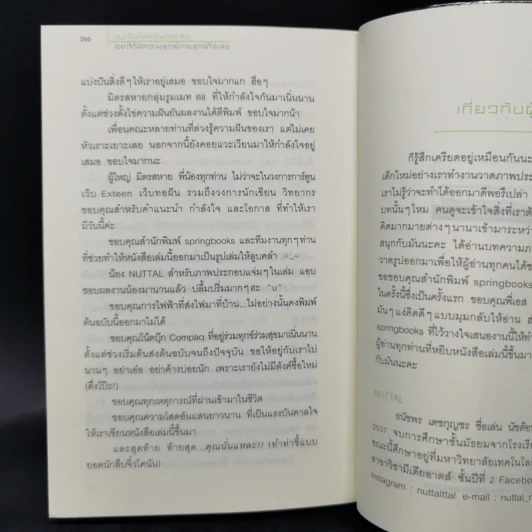 200
แบ่งปันสิ่งดีๆให้เราอยู่เสมอ ขอบใจมากแก ฮือๆ
มิตรสหายกลุ่มรูมเมท B8 ที่ให้กำลังใจกันมาเนิ่นนาน
ตั้งแต่ช่วงตั้งไข่ความฝันยันผลงานได้ตีพิมพ์ ขอบใจมากน้า
เพื่อนคณะหลายท่านที่ล่วงรู้ความฝันของเรา แต่ไม่เคย
หัวเราะเยาะเลย นอกจากนี้ยังคอยแวะเวียนมาให้กำลังใจอยู่
เสมอ ขอบใจมากนะ
ผู้ใหญ่ มิตรสหาย พี่น้องทุกท่าน ไม่ว่าจะในวงการการ์ตูน
เว็บ Exteen เว็บทอฝัน รวมถึงวงการนักเขียน วิทยากร
ขอบคุณสำหรับคำแนะนำ กำลังใจ และโอกาส ที่ทำให้เรา
มีวันนี้ค่ะ
ขอบคุณสำนักพิมพ์ springbooks และทีมงานทุกๆท่าน
ที่ช่วยทำให้หนังสือเล่มนี้ออกมาเป็นรูปเล่มให้ลูบคลำ .=.,=
น้อง NUTTAL สำหรับภาพประกอบแจ่มๆในเล่ม แอบ
ชอบผลงานน้องมานานแล้ว ปลื้มปริ่มมากๆฮะ ^u^
ขอบคุณการไฟฟ้าที่ส่งไฟมาที่บ้าน...ไม่อย่างนั้นคงพิมพ์
ต้นฉบับนี้ออกมาไม่ได้
ขอบคุณโน้ตบุ๊ก Compaq ที่อยู่ร่วมทุกข์ร่วมสุขมาเนิ่นนาน
ตั้งแต่ช่วงเริ่มต้นส่งต้นฉบับจนถึงปัจจุบัน ขอให้อยู่กับเราไป
นานๆ อย่าเอ๋อ อย่าค้างบ่อยนัก เพราะเรายังไม่มีตังค์ซื้อใหม่
(ดึ่งโป๊ะ!)
ขอบคุณทุกเหตุการณ์ที่ผ่านเข้ามาในชีวิต
ขอบคุณความโสดอันแสนยาวนาน ที่เป็นแรงบันดาลใจ
ให้เราเขียนหนังสือเล่มนี้ขึ้นมา
และสุดท้าย ท้ายสุด...คุณนั่นแหละ!! (ทำท่าชี้แบบ
ยอดนักสืบจิ๋วโคนัน)
ก็รู้สึกเครียดอยู่เหมือนกันนะ
เด็กใหม่อย่างเราทำงานวาดภาพประ
เราไม่รู้ว่าจะทำได้ออกมาดีพอรึเปล่า
บทนั้นๆไหม คนดูจะเข้าใจสิ่งที่เราต้
คิดมากมายต่างๆนานาเข้ามาระหว่า
สนุกกับมันนะคะ ได้อ่านบทความภ
วาดรูปออกมาเพื่อให้ผู้อ่านทุกคนได้
ขอขอบคุณสำนักพิมพ์ springbook
ในครั้งนี้ซึ่งเป็นครั้งแรก ขอบคุณพี่เอส
มันๆแง่คิดดีๆแบบมุมกลับให้อ่าน
springbooks ที่ไว้วางใจเสนองานนี้ให้ทำ
ผู้อ่านทุกท่านที่หยิบหนังสือเล่มนี้ขึ้นมา
กับมันนะคะ
NUTTAL
ธนัชพร เตชกุญชร ชื่อเล่น นัชต้อ
2537 จบการศึกษาชั้นมัธยมจากโรงเรีย
ขณะนี้ศึกษาอยู่ที่มหาวิทยาลัยเทคโนโล
สาขาวิชามีเดียอาตส์ ชั้นปีที่ 2 Facebo
Instagram : nuttalttal e-mail : nuttal_r